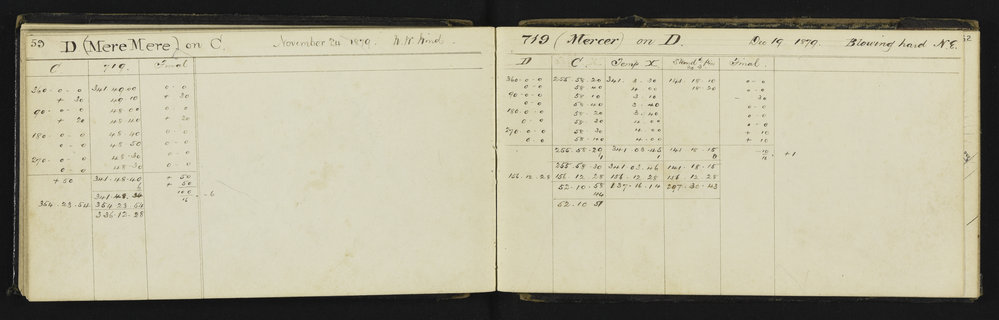 59 D (Mere Mere) on C. November 24 1879. N.W. Wind.
C 719. Final
360 - 0 - 0 341. 49. 00 0 - 0
+ 30 49. 10 + 30
90 - 0 - 0 48. 00 0 - 0
+ 20 48. 40 + 20
180 - 0 - 0 48. 40 0 - 0
0 - 0 48. 50 0 - 0
270 - 0 - 0 48. 30 0 - 0
0 - 0 48. 30 0 - 0
+ 50 341. 48. 40 + 50
6 + 50
341. 48. 34 100
16 - 6
354. 23. 54 354. 23. 54
336. 12. 28
719 (Mercer) on D. Dec 19 1879. Blowing hard N.E.
D C. Temp X Final
360 - 0 - 0 255. 58. 20 341. 3. 30 141. 18. 10 0 - 0
0 - 0 58. 40 4. 00 18. 20 0 - 0
90 - 0 - 0 58. 10 3. 10 - 30
0 - 0 58. 40 3. 40 0 - 0
180 - 0 - 0 58. 20 3. 40 0 - 0
0 - 0 58. 30 4. 00 0 - 0
270 - 0 - 0 58. 30 4. 00 + 10
0 - 0 58. 40 4. 00 + 10
255. 58. 29 341. 03. 45 141. 18. 15 - 10
1 1 0 16 + 1
255. 58. 30 341. 03. 46 141. 18. 15
156. 12. 28 156. 12. 28 156. 12. 28 156. 12. 28
52. 10. 58 137. 16. 14 297. 30. 43
52. 10. 57